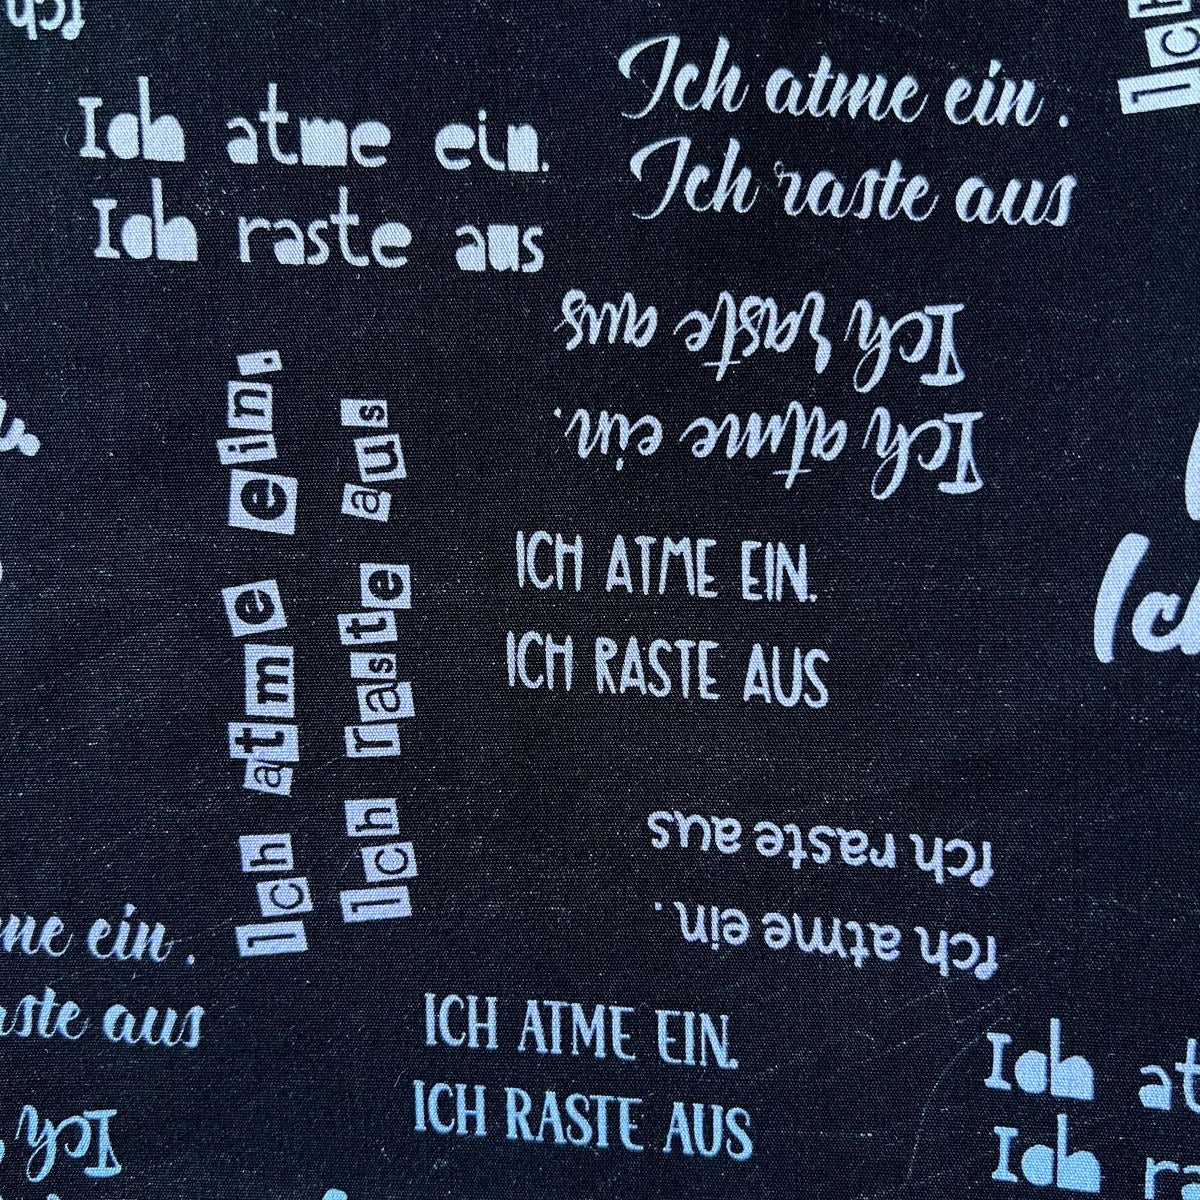 Ich
Ich
Ich atme ein.
Ich raste aus
Ich atme ein .
Ich raste aus
Ich atme ein.
Ich raste aus
Ich atme ein.
Ich raste aus
ICH ATME EIN.
ICH RASTE AUS
Ich atme ein .
Ich raste aus
me ein .
aste aus
ICH ATME EIN.
ICH RASTE AUS
Ich at
Ich ra
Ich